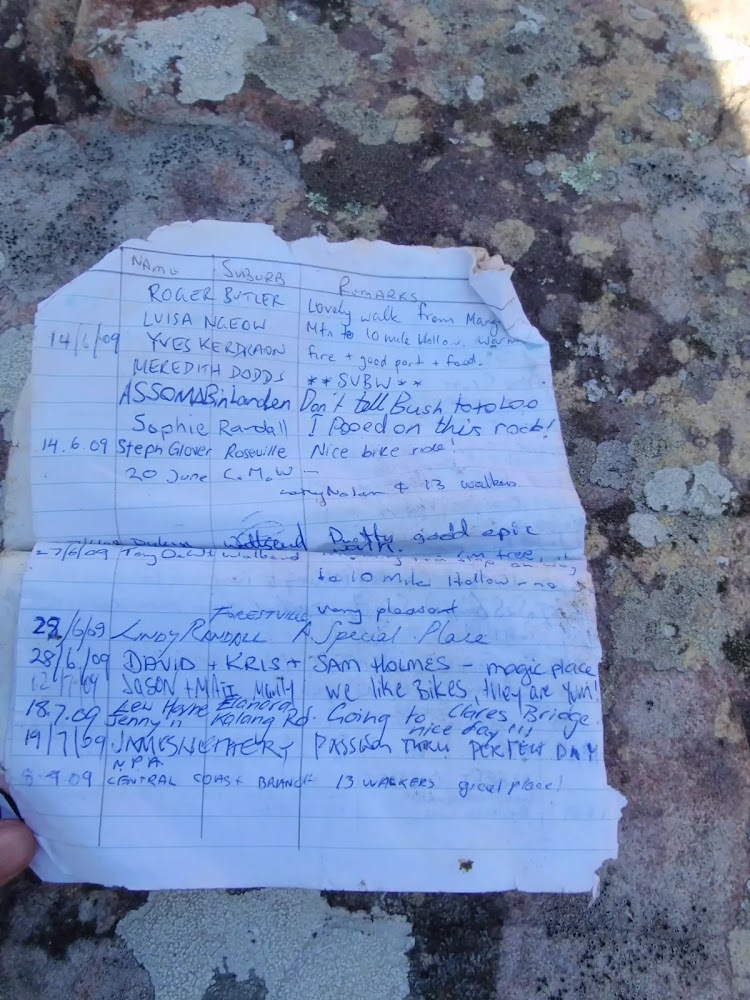 NAME SUBURB REMARKS
ROGER BUTLER Lovely walk from Mang
LUISA NGEOW Mtn to 10 mile Hollow. Warm
14/6/09 YVES KERDRAON fire + good port + food.
MEREDITH DODDS ** SUBW **
ASSOMABinLanden Don't tell Bush
Sophie Randall I Pooed on this rock!
14.6.09 Steph Glover Roseville Nice bike ride!
20 June C.M.W -
Nolan & 13 walkers
Pretty good epic
27/6/09 Tony
to 10 Mile Hollow -
FORESTVILLE very pleasant
/6/09 LINDY RANDALL A Special Place
28/6/09 DAVID + KRIS + SAM HOLMES - magic place
12/7/09 JASON + MATT Manly we like Bikes, they are yum!
18.7.09 Elanora Going to Clares Bridge.
Jenny Kalang Rd. nice day !!!
19/7/09 PASSING THRU PERFECT DAY
NPA
09 CENTRAL COAST BRANCH 13 WALKERS great place!